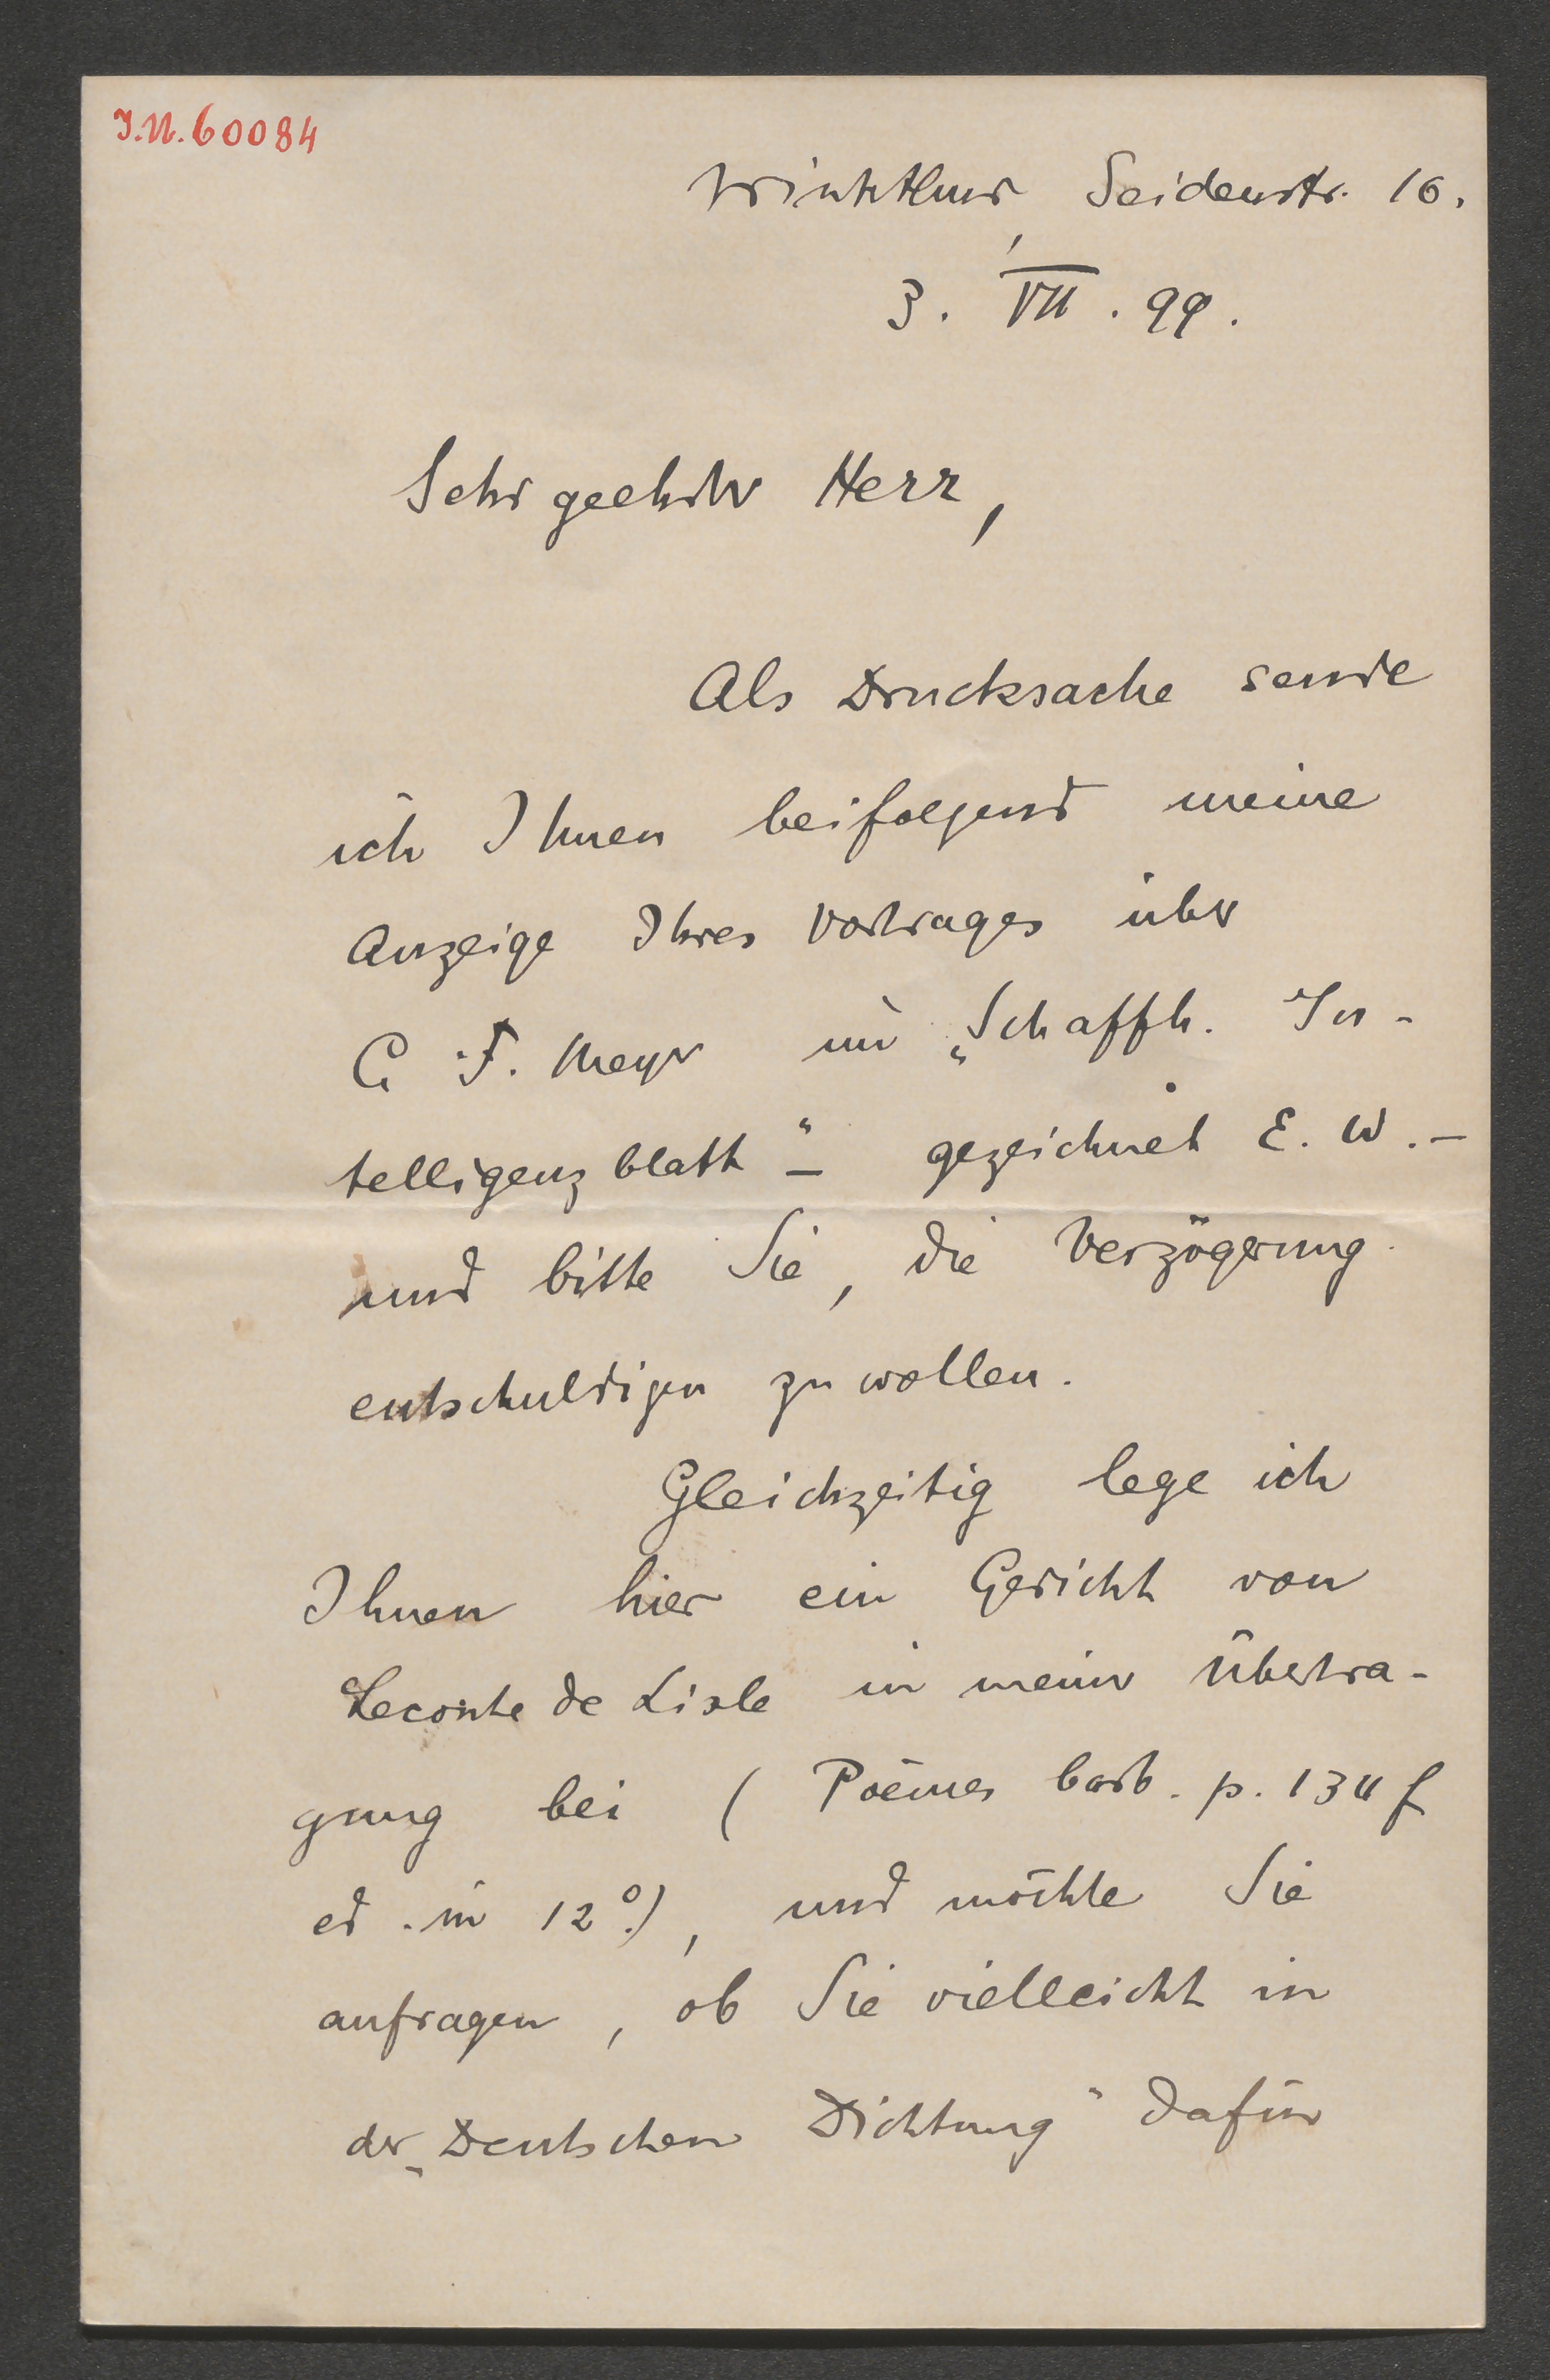 I.N. 60084
Winterthur, Seidenstr. 16.
3. VII. 99.
Sehr geehrter Herr,
Als Drucksache sende
ich Ihnen beifolgend meine
Anzeige Ihres Vortrages über
C. F. Meyer im „Schaffh. In-
telligenzblatt“ – gezeichnet E. W. –
und bitte Sie, die Verzögerung
entschuldigen zu wollen.
Gleichzeitig lege ich
Ihnen hier ein Gedicht von
Leconte de Lisle in meiner Übertra-
gung bei (Poèmes barb. p. 134 f
ed. in 12°.), und möchte Sie
anfragen, ob Sie vielleicht in
der „Deutschen Dichtung“ dafür